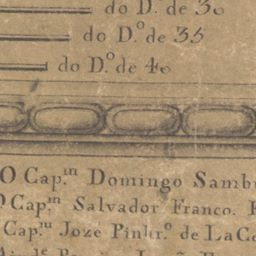 do D.º de 30
do D.º de 35
do D.º de 40
O Cap.ᵐ Domingo Samb
Cap.ᵐ Salvador Franco.
Cap.ᵐ Joze Pinhr.º de La